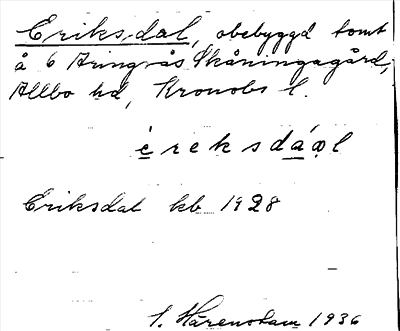 Eriksdal, obebyggd tomt
å 6 Aringsås Skåningagård,
Allbo hd, Kronobs l.
èreksdáǫl
Eriksdal kb 1928
S. Hårenstam 1936